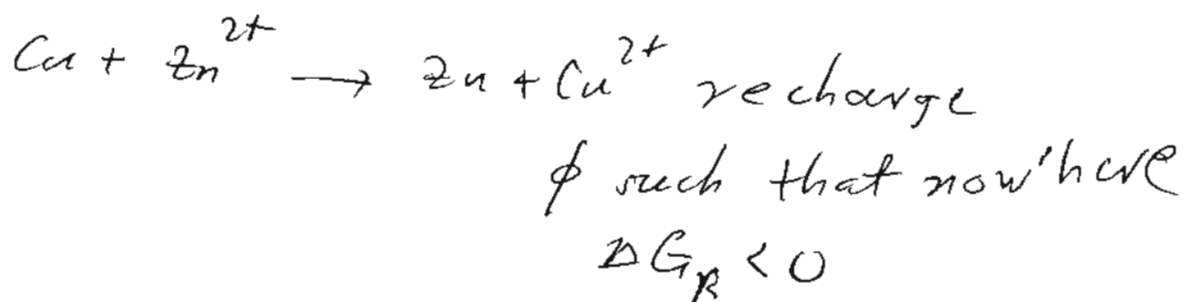 Cu + Zn²⁺ → Zn + Cu²⁺ recharge
ϕ such that now here
ΔG_R < 0